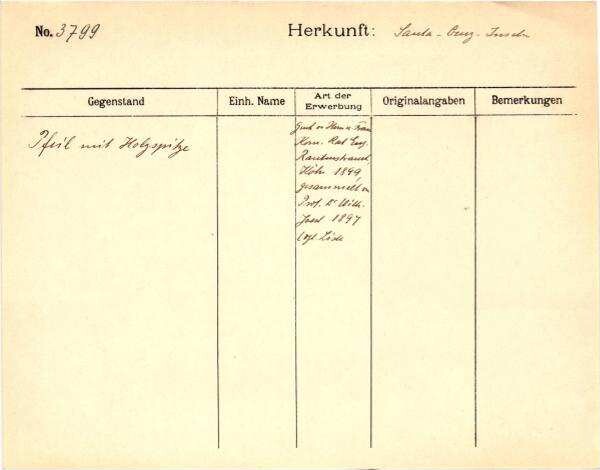 No. 3799 Herkunft: Santa-Cruz-Inseln
Gegenstand Einh. Name Art der Erwerbung Originalangaben Bemerkungen
Pfeil mit Holzspitze
Gesch. v. Herrn u. Frau
Kom. Rat Eug.
Rautenstrauch
Köln 1899,
gesammelt v.
Prof. Dr Wilh.
Joest 1897
(vgl. Liste